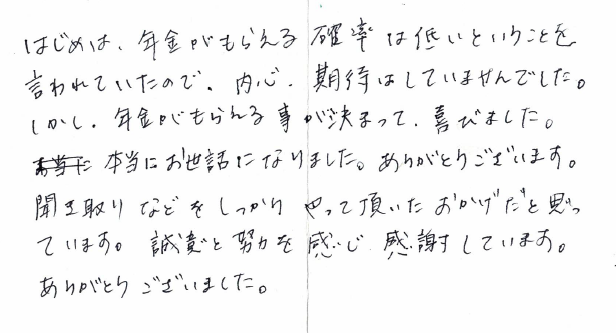 はじめは、年金がもらえる確率は低いということを
言われていたので、内心、期待はしていませんでした。
しかし、年金がもらえる事が決まって、喜びました。
本当にお世話になりました。ありがとうございます。
聞き取りなどをしっかりやって頂いたおかげだと思っ
ています。誠意と努力を感じ感謝しています。
ありがとうございました。